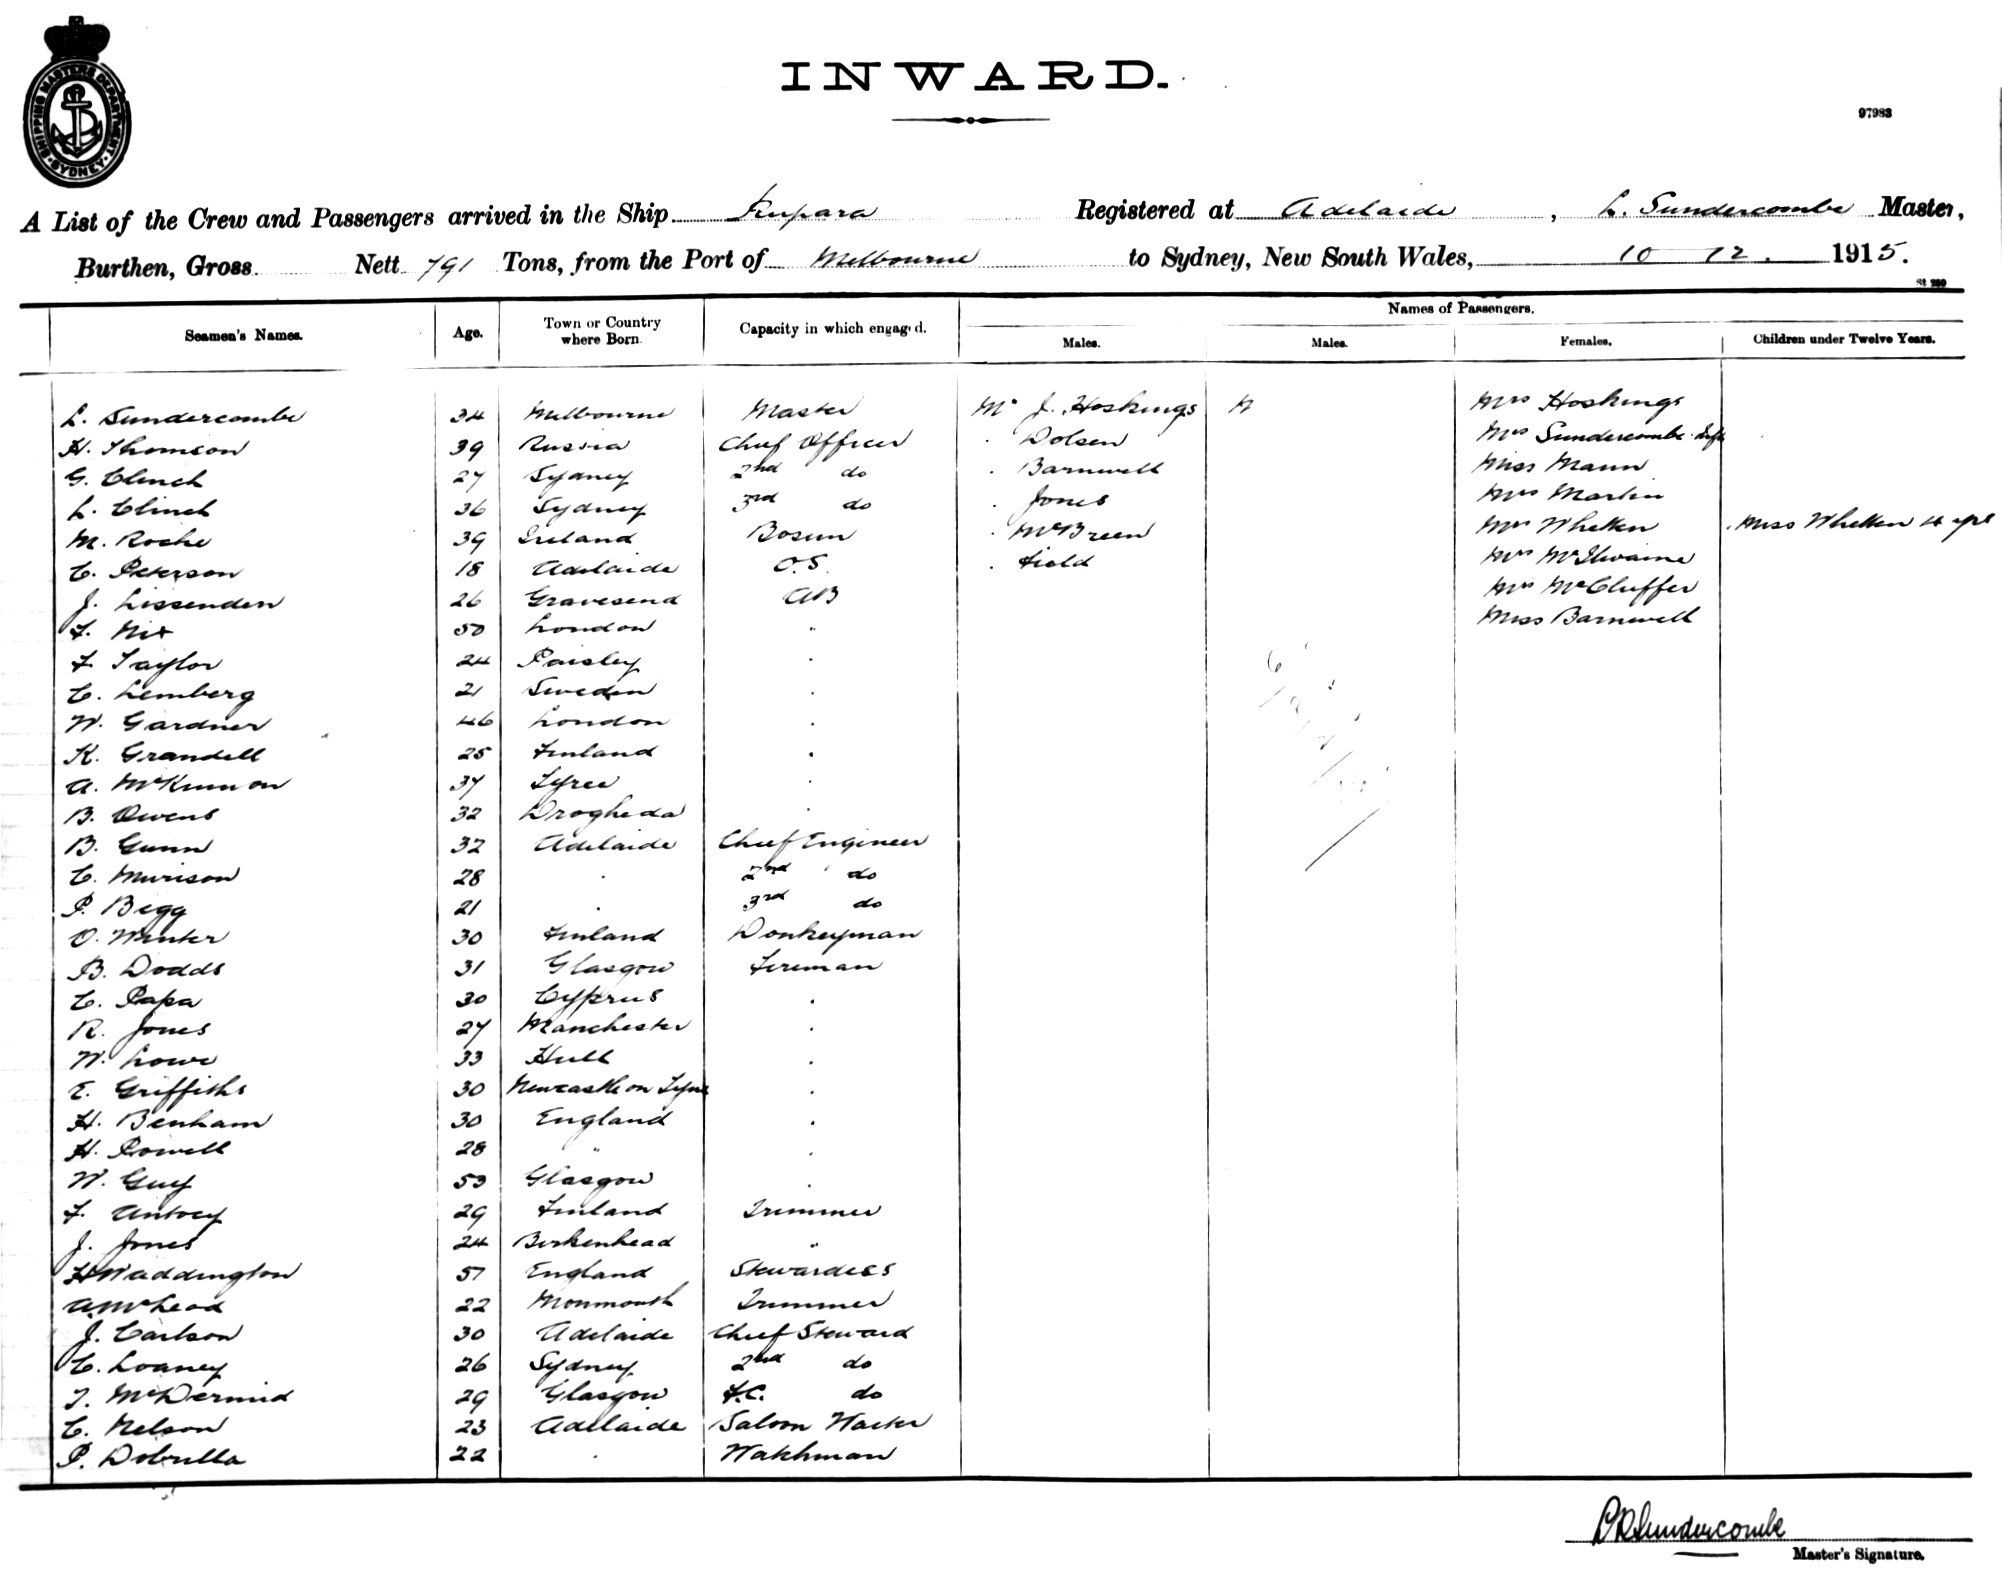 SHIPPING MASTERS DEPARTMENT
SYDNEY
INWARD.
97983
A List of the Crew and Passengers arrived in the Ship Rupara Registered at Adelaide, L. Sundercombe Master,
Burthen, Gross Nett 791 Tons, from the Port of Melbourne to Sydney, New South Wales, 10 12. 1915.
St 280
Names of Passengers.
Seamen's Names. Age. Town or Country where Born. Capacity in which engaged. Males. Males. Females. Children under Twelve Years.
L. Sundercombe 34 Melbourne Master Mr J. Hoskings Mrs Hoskings
H. Thomson 39 Russia Chief Officer . Dolsen Mrs Sundercombe Inft
G. Clinch 27 Sydney 2nd do . Barnwell Miss Mann
L. Clinch 36 Sydney 3rd do . Jones Mrs Martin
M. Roche 39 Ireland Bosun . McBreen Mrs Whetken . Miss Whetken 4 yrs
C. Peterson 18 Adelaide O.S. . Field Mrs McIlwaine
J. Lissenden 26 Gravesend AB Mrs McCluffer
F. Nix 50 London " Miss Barnwell
F. Taylor 24 Paisley .
C. Lemberg 21 Sweden .
W. Gardner 46 London .
K. Grandell 25 Finland .
A. McKinnon 37 Tyree .
B. Owens 32 Drogheda .
B. Gunn 32 Adelaide Chief Engineer
C. Murison 28 . 2nd do
P. Begg 21 . 3rd do
O. Winter 30 Finland Donkeyman
B. Dodds 31 Glasgow Fireman
C. Papa 30 Cyprus .
R. Jones 27 Manchester .
W. Lowe 33 Hull .
E. Griffiths 30 Newcastle on Tyne .
H. Benham 30 England .
H. Powell 28 " .
W. Guy 53 Glasgow .
F. Antocy 29 Finland Trimmer
J. Jones 24 Birkenhead "
H Waddington 51 England Stewardess
A. McLeod 22 Monmouth Trimmer
J. Carlson 30 Adelaide Chief Steward
C. Loaney 26 Sydney 2nd do
J. McDermid 29 Glasgow F.C. do
C. Nelson 23 Adelaide Saloon Waiter
P. Dobrulla 22 . Watchman
L R Sundercombe
Master's Signature.